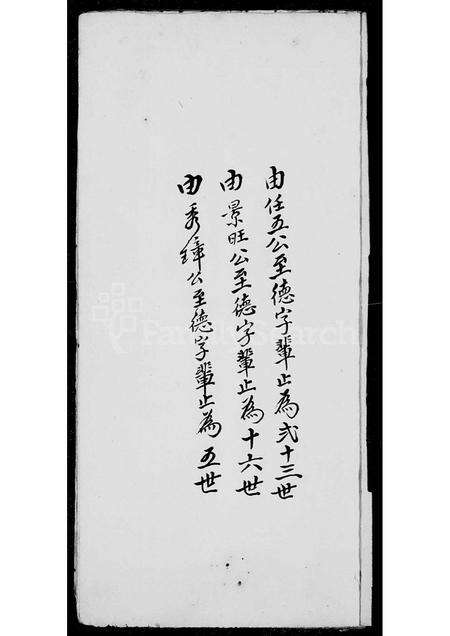 由任五公至德字輩止為弍十三世
由景旺公至德字輩止為十六世
由秀璋公至德字輩止為五世
FamilySearch